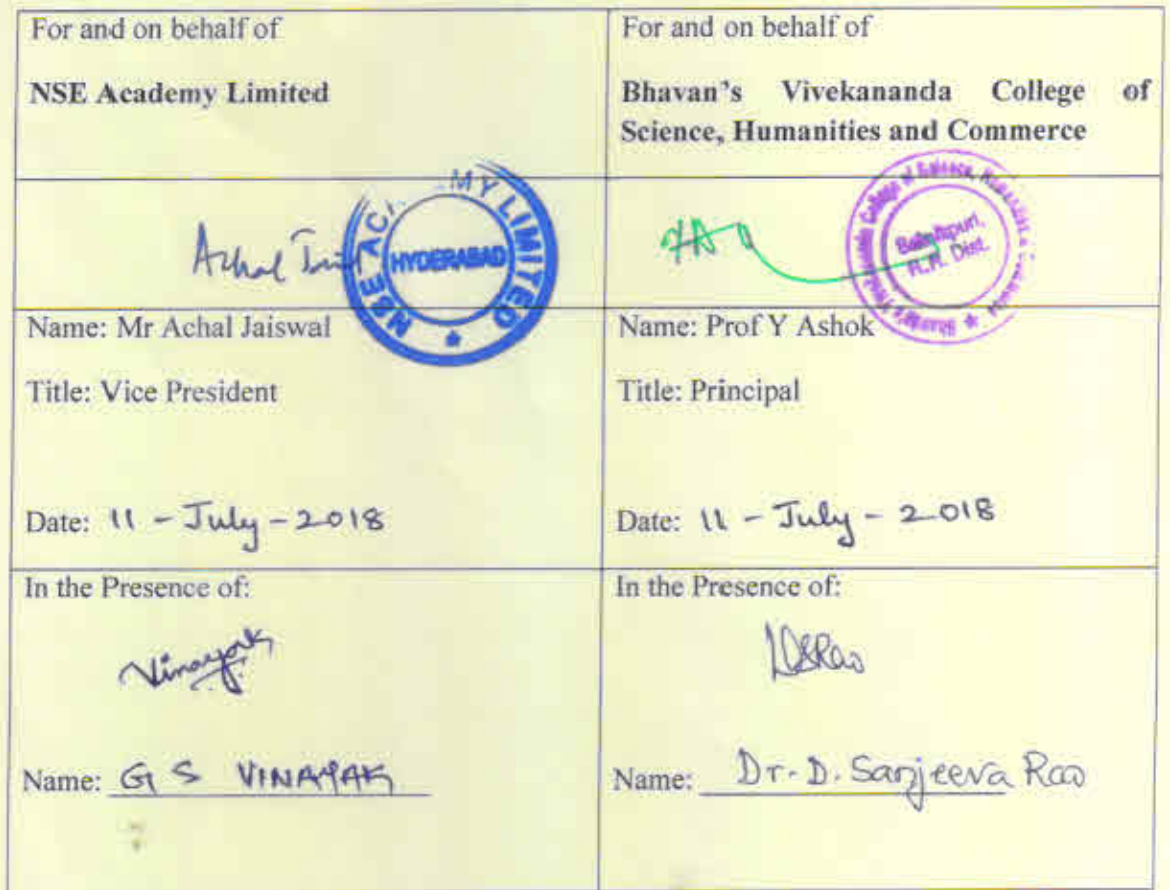 For and on behalf of
NSE Academy Limited
For and on behalf of
Bhavan's Vivekananda College of
Science, Humanities and Commerce
Achal
MY LIMITED
NSE AC
HYDERABAD
College of Science,
R.R. Dist.
Name: Mr Achal Jaiswal
Title: Vice President
Date: 11 - July - 2018
Name: Prof Y Ashok
Title: Principal
Date: 11 - July - 2018
In the Presence of:
Vinayak
Name: G S VINAYAK
In the Presence of:
DSRao
Name: Dr. D. Sanjeeva Rao